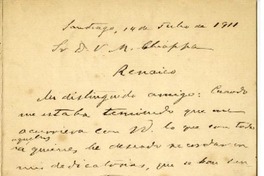 Santiago, 14 de Julio de 1911
Sr D. V. M. Chiappa
Renaico
Mi distinguido amigo: Cuando
me estaba temiendo que me
aconteciera con VD. lo que con todos
aquellos
a quienes he deseado recordar en
mis dedicatorias, que o han